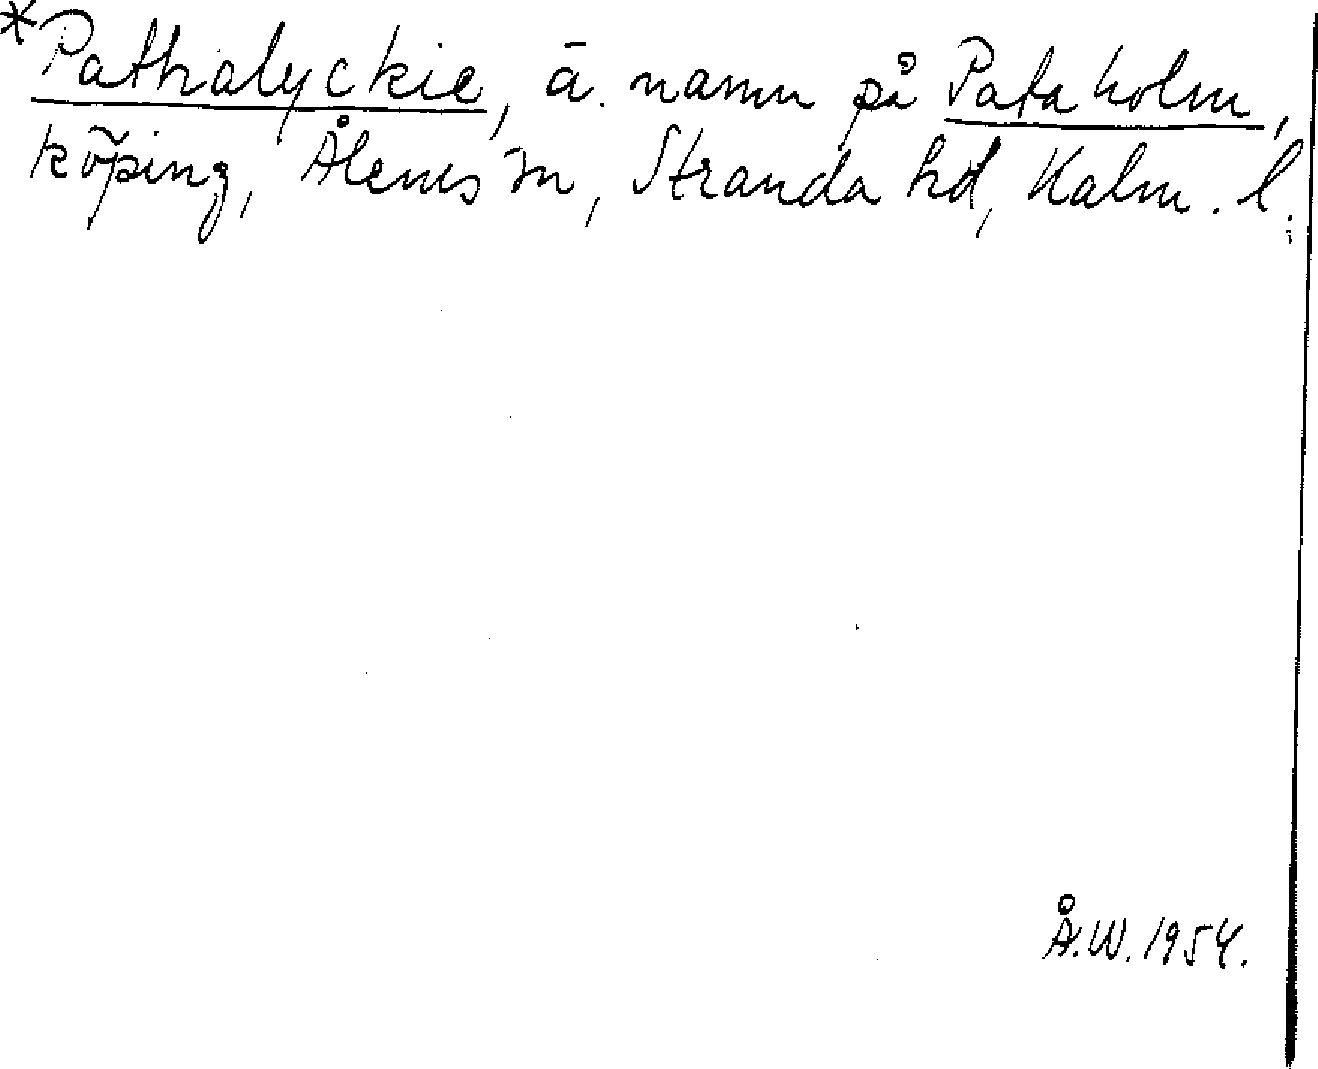 *Pathalyckie, ä. namn på Pataholm,
köping, Ålems sn, Stranda hd, Kalm. l.
Å.W. 1954.